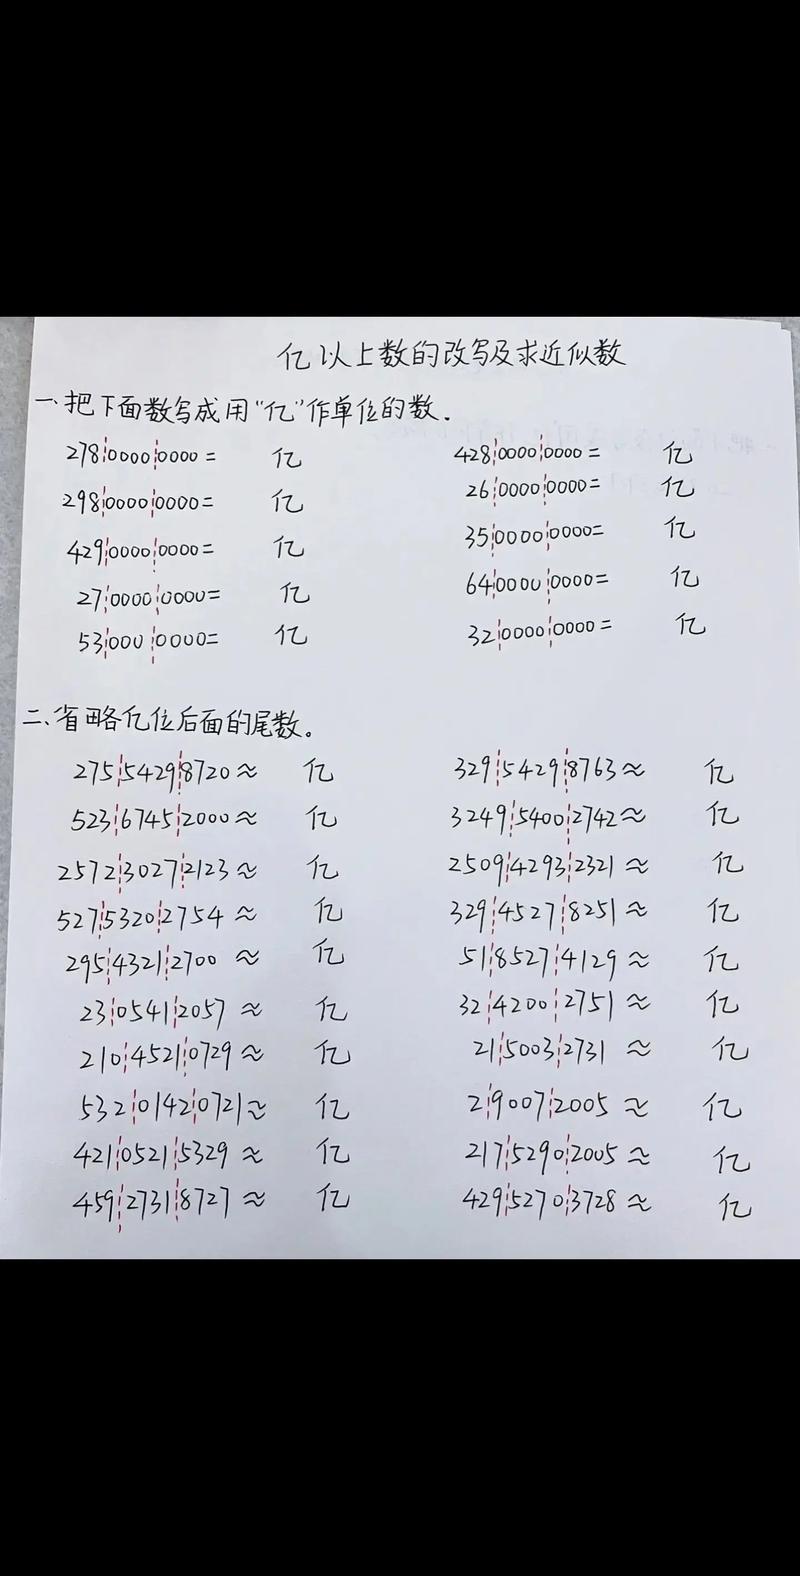 亿以上数的改写及求近似数
一、把下面数写成用“亿”作单位的数.
278¦0000¦0000= 亿 428¦0000¦0000= 亿
298¦0000¦0000= 亿 26¦0000¦0000= 亿
429¦0000¦0000= 亿 35¦0000¦0000= 亿
27¦0000¦0000= 亿 64¦0000¦0000= 亿
53¦000¦0000= 亿 32¦0000¦0000= 亿
二、省略亿位后面的尾数。
275¦5429¦8720≈ 亿 329¦5429¦8763≈ 亿
523¦6745¦2000≈ 亿 3249¦5400¦2742≈ 亿
2572¦3027¦2123≈ 亿 2509¦4293¦2321≈ 亿
527¦5320¦2754≈ 亿 329¦4527¦8251≈ 亿
295¦4321¦2700≈ 亿 51¦8527¦4129≈ 亿
23¦0541¦2057≈ 亿 32¦4200¦2751≈ 亿
210¦4521¦0729≈ 亿 21¦5003¦2731≈ 亿
532¦0142¦0721≈ 亿 2¦9007¦2005≈ 亿
421¦0521¦5329≈ 亿 217¦5290¦2005≈ 亿
459¦2731¦8727≈ 亿 429¦5270¦3728≈ 亿